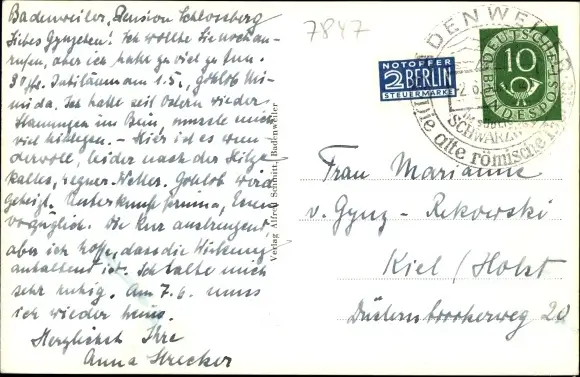 Badenweiler, Pension Schlossberg
Liebes Gynzchen! Ich wollte Sie noch an-
rufen, aber ich hatte zu viel zu tun.
Jubiläum am 1.5., gottlob
Ich hatte seit Ostern wieder
Stauungen im Bein, musste mich
viel hinlegen. – Hier ist es wun
dervolle, leider nach der Hitze
kaltes, Regner-Wetter. Gottlob wird
geheizt. Unterkunft prima, Essen
vorzüglich. Die Kur anstrengend
aber ich hoffe, dass die Wirkung
anhaltend ist. Ich halte mich
sehr ruhig. Am 7.6. muss
ich wieder heim.
Herzlichst Ihre
Anna Strecker
Verlag Alfred Schmitt, Badenweiler
7847
NOTOPFER
2 BERLIN
STEUERMARKE
DEUTSCHE
10
BUNDESPOST
BADENWEILER
SCHWARZW
alte römische
Frau Marianne
v. Gynz-Rekowski
Kiel / Holst
Düsternbrookerweg 20